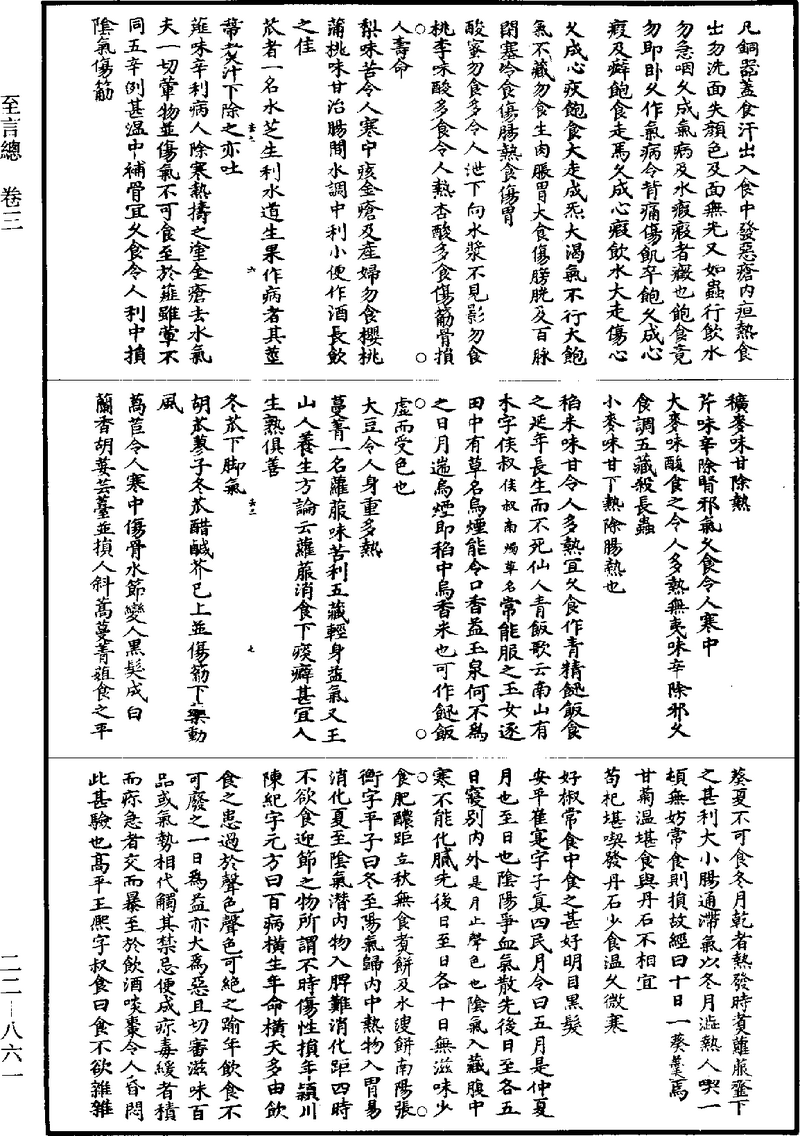 至言總 卷三
凡銅器蓋食汗出入食中發惡瘡內疽熱食
出勿洗面失顏色及面無光又如蟲行飲水
勿急咽久成氣病及水瘕瘕者癥也飽食竟
勿即臥久作氣病令背痛傷飢卒飽久成心
瘕及癖飽食走馬久成心瘕飲水大走傷心
久成心疾飽食大走成炁大渴氣不行大飽
氣不藏勿食生肉服胃大食傷膀胱及百脉
閉塞冷食傷腸熱食傷胃
酸蜜勿食多令人泄下向水漿不見影勿食
桃李味酸多食令人熱杏酸多食傷筋骨損
人壽命
梨味苦令人寒中痎金瘡及産婦勿食櫻桃
蒲桃味甘治腸間水調中利小便作酒長飲
之佳
苽者一名水芝生利水道生果作病者其莖
蒂煑汁下除之亦吐
薤味辛利病人除寒熱擣之塗金瘡去水氣
夫一切葷物並傷氣不可食至於薤雖葷不
同五辛例甚温中補骨宜久食令人利中損
陰氣傷筋
穬麥味甘除熱
芹味辛除腎邪氣久食令人寒中
大麥味酸食之令人多熱無夷味辛除邪久
食調五藏殺長蟲
小麥味甘下熱除腸熱也
稻米味甘令人多熱宜久食作青精䭀飯食
之延年長生而不死仙人青飯歌云南山有
木字侯叔侯叔南燭草名常能服之玉女逐
田中有草名烏煙能令口香益玉泉何不爲
之日月遄烏煙即稻中烏香米也可作䭀飯
虛而受色也
大豆令人身重多熱
蔓菁一名蘿菔味苦利五藏輕身益氣又王
山人養生方論云蘿菔消食下痰癖甚宜人
生熟俱善
冬苽下脚氣
胡苽蓼子冬苽醋鹹芥已上並傷筋下藥動
風
萵苣令人寒中傷骨水節變人黑髮成白
蘭香胡荽芸薹並損人斜蒿蔓菁葅食之平
葵夏不可食冬月乾者熱發時煑蘿菔虀下
之甚利大小腸通滯氣以冬月澁熱人喫一
頓無妨常食則損故經曰十日一葵羹爲
甘菊温堪食與丹石不相宜
苟杞堪喫發丹石少食温久微寒
好椒常食中食之甚好明目黑髮
安平崔寔字子真四民月令曰五月是仲夏
月也至日也陰陽爭血氣散先後日至各五
日寢別內外是月止聲色也陰氣入藏腹中
寒不能化膩先後日至日各十日無滋味少
食肥醲距立秋無食煑餅及水溲餅南陽張
衡字平子曰冬至陽氣歸內中熱物入胃易
消化夏至陰氣潜內物入脾難消化距四時
不欲食迎節之物所謂不時傷性損年潁川
陳紀字元方曰百病橫生年命橫夭多由飲
食之患過於聲色聲色可絶之踰年飲食不
可廢之一日爲益亦大爲惡且切審滋味百
品或氣勢相代觸其禁忌便成疢毒緩者積
而疢急者交而暴至於飲酒啖棗令人昏悶
此甚驗也高平王熙字叔食曰食不欲雜雜
二二—八六一